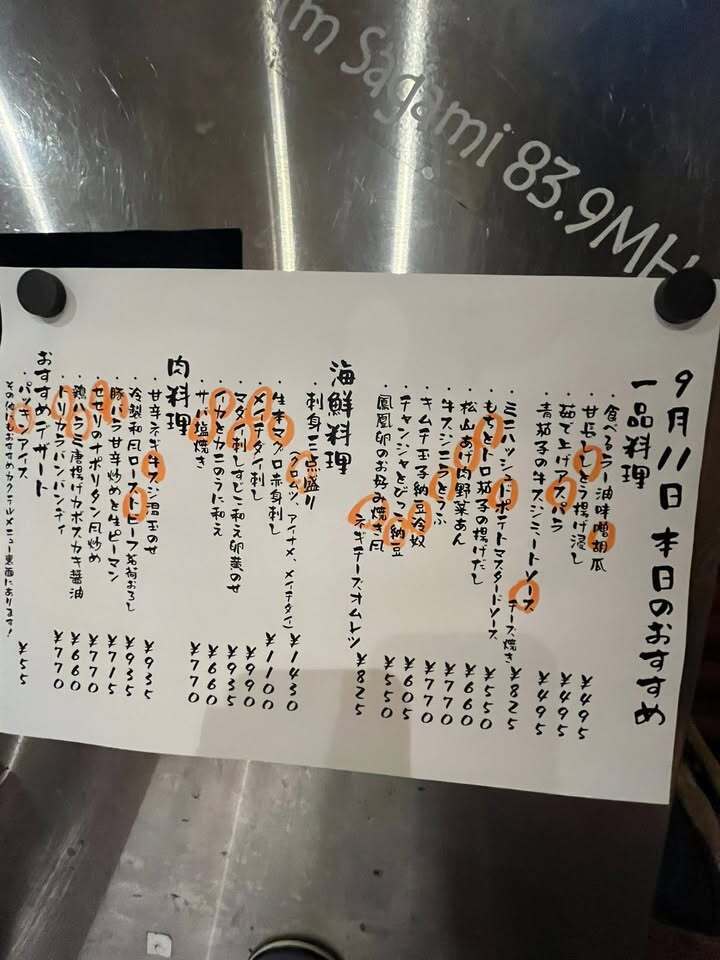 m Sagami 83.9MH
9月11日 本日のおすすめ
一品料理
・食べるラー油味噌胡瓜 ¥495
・甘長ししとう揚げ浸し ¥495
・茹で上げ バラ ¥495
青茄子の牛スジミートソースチーズ焼き ¥825
・ミニハッシュドポテトマスタードソース ¥550
・もちとトロ茄子の揚げだし ¥660
・松山あげ肉野菜あん ¥770
・牛スジニラとうふ ¥770
・キムチ玉子納豆冷奴 ¥605
・チャンジャとびっこ納豆 ¥550
・鳳凰卵のお好み焼き風
ネギチーズオムレツ ¥825
海鮮料理
・刺身三点盛り(クロムツ、アイナメ、メイチダイ) ¥1430
・生本マグロ赤身刺し ¥1100
・メイチダイ刺し ¥990
・マダイ刺しすじこ和え卵黄のせ ¥935
・イカとカニのうに和え ¥660
・サバ塩焼き ¥770
肉料理
・甘辛ネギ牛スジ温玉のせ ¥935
・冷製和風ローストビーフ茗荷おろし ¥935
・豚バラ甘辛炒めと生ピーマン ¥715
・セセリのナポリタン風炒め ¥770
・鶏ハラミ唐揚げカボスカキ醤油 ¥660
・トリカラバンバンディ ¥770
おすすめデザート
・パッキンアイス ¥55
その他にもおすすめカクテルメニュー裏面にあります!